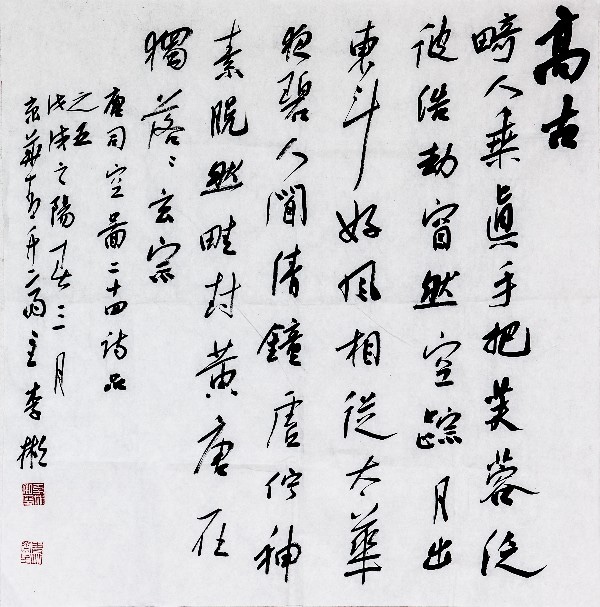 高古
畸人乗眞手把芙蓉泛
彼浩劫窅然空蹤月出
東斗好風相從太華
夜碧人聞清鐘虛佇神
素脱然畦封黄唐在
獨落〻玄宗
唐司空圖二十四詩品
之五
戊戌之陽春三月
京華 主李彬